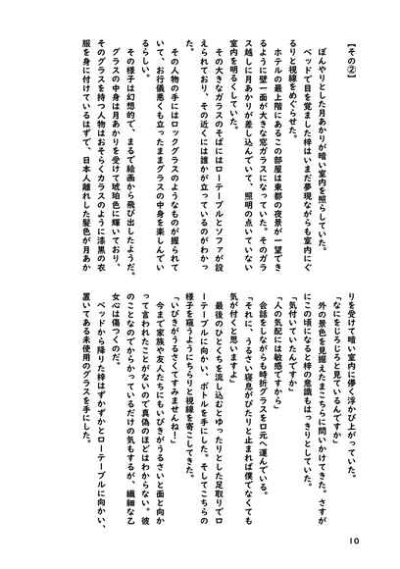 【その②】
ぼんやりとした月あかりが暗い室内を照らしていた。
ベッドで目を覚ました梓はいまだ夢現ながらも室内にぐ
るりと視線をめぐらせた。
ホテルの最上階にあるこの部屋は東都の夜景が一望でき
るように壁一面が大きな窓ガラスになっていた。そのガラ
ス越しに月あかりが差し込んでいて、照明の点いていない
室内を明るくしていた。
その大きなガラスのそばにはローテーブルとソファが設
えられており、その近くには誰かが立っているのがわかっ
た。
その人物の手にはロックグラスのようなものが握られて
いて、お行儀悪くも立ったままグラスの中身を楽しんでい
るらしい。
その様子は幻想的で、まるで絵画から飛び出したようだ。
グラスの中身は月あかりを受けて琥珀色に輝いており、
そのグラスを持つ人物はおそらくカラスのように漆黒の衣
服を身に付けているはずで、日本人離れした髪色が月あか
りを受けて暗い室内に儚く浮かび上がっていた。
「なにをじろじろと見ているんですか」
外の景色を見据えたまこちらに問いかけてきた。さすが
にこの頃になると梓の意識もはっきりとしていた。
「気付いていたんですか」
「人の気配には敏感ですから」
会話をしながらも時折グラスを口元へ運んでいる。
「それに、うるさい寝息がぴたりと止まれば僕でなくても
気が付くと思いますよ」
最後のひとくちを流し込むとゆったりとした足取りでロ
ーテーブルに向かい、ボトルを手にした。そしてこちらの
様子を窺うようにちらりと視線を寄こしてきた。
「いびきがうるさくてすみませんね！」
今まで家族や友人たちにもいびきがうるさいと面と向か
って言われたことがないので真偽のほどはわからない。彼
のことなのでからかっているだけの気もするが、繊細な乙
女心は傷つくのだ。
ベッドから降りた梓はずかずかとローテーブルに向かい、
置いてある未使用のグラスを手にした。
10